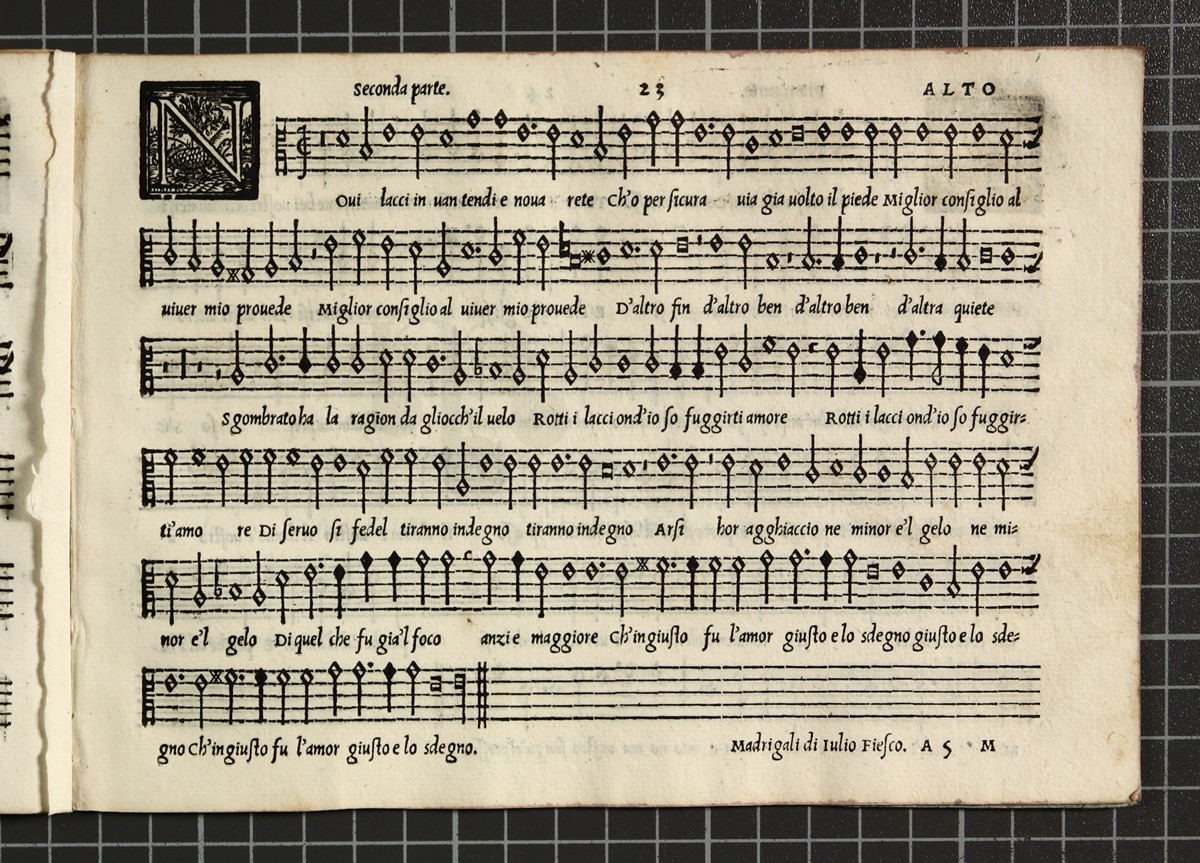 Seconda parte. 23 ALTO
NOui lacci in uan tendi e noua rete Ch'o per ſicura uia gia uolto il piede Miglior conſiglio al
uiuer mio prouede Miglior conſiglio al uiuer mio prouede D'altro fin d'altro ben d'altro ben d'altra quiete
Sgombrato ha la ragion da gliocch'il uelo Rotti i lacci ond'io ſo fuggirti amore Rotti i lacci ond'io ſo fuggir=
ti'amo re Di ſeruo ſi fedel tiranno indegno tiranno indegno Arſi hor agghiaccio ne minor e'l gelo ne mi=
nor e'l gelo Di quel che fu gia'l foco anzi e maggiore Ch'ingiuſto fu l'amor giuſto e lo sdegno giuſto e lo sde=
gno Ch'ingiuſto fu l'amor giuſto e lo sdegno.
Madrigali di Iulio Fieſco. A 5 M